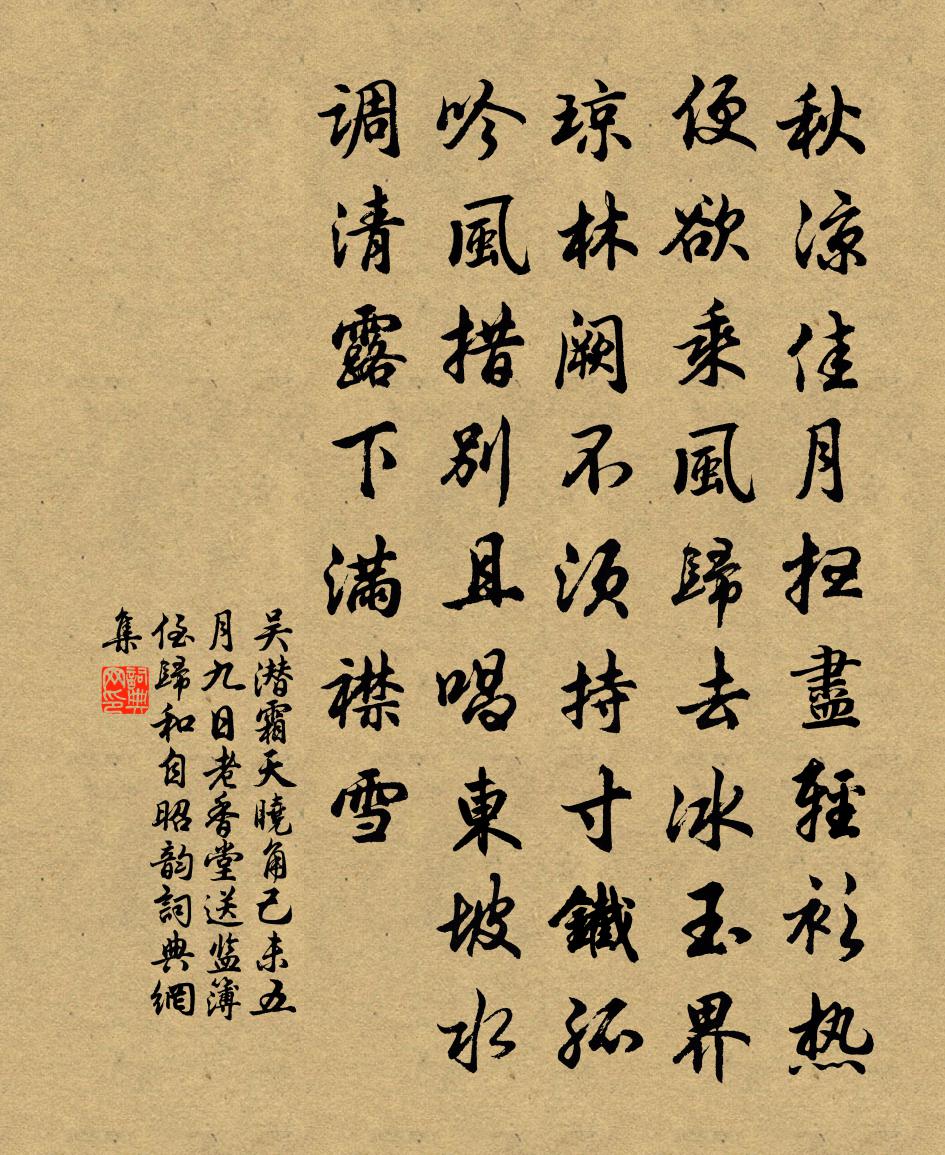 秋涼佳月扫盡輕衫热
便欲乘風歸去冰玉界
琼林阙不须持寸鐵孤
吟風措别且唱東坡水
调清露下满襟雪
吴潜霜天曉角己未五
月九日老香堂送监簿
侄歸和自昭韵詞典網
集
詞典网印